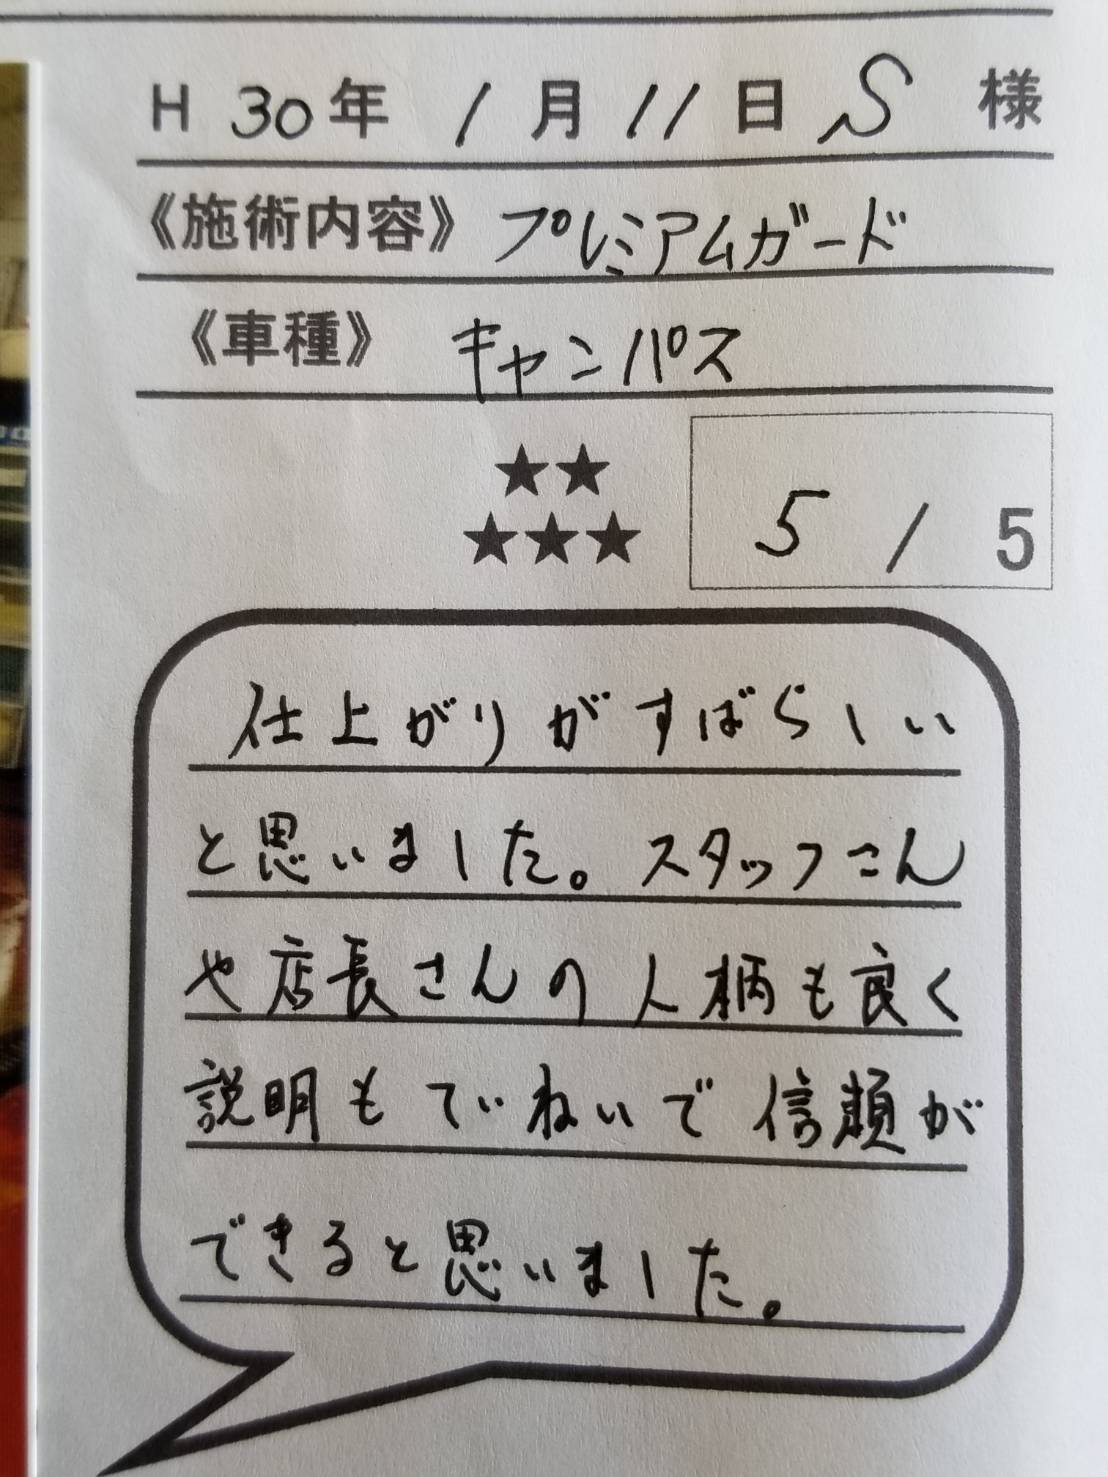 H 30年 1月 11日 S 様
《施術内容》 プレミアムガード
《車種》 キャンパス
★★
★★★
5 / 5
仕上がりがすばらしい
と思いました。スタッフさん
や店長さんの人柄も良く
説明もていねいで信頼が
できると思いました。